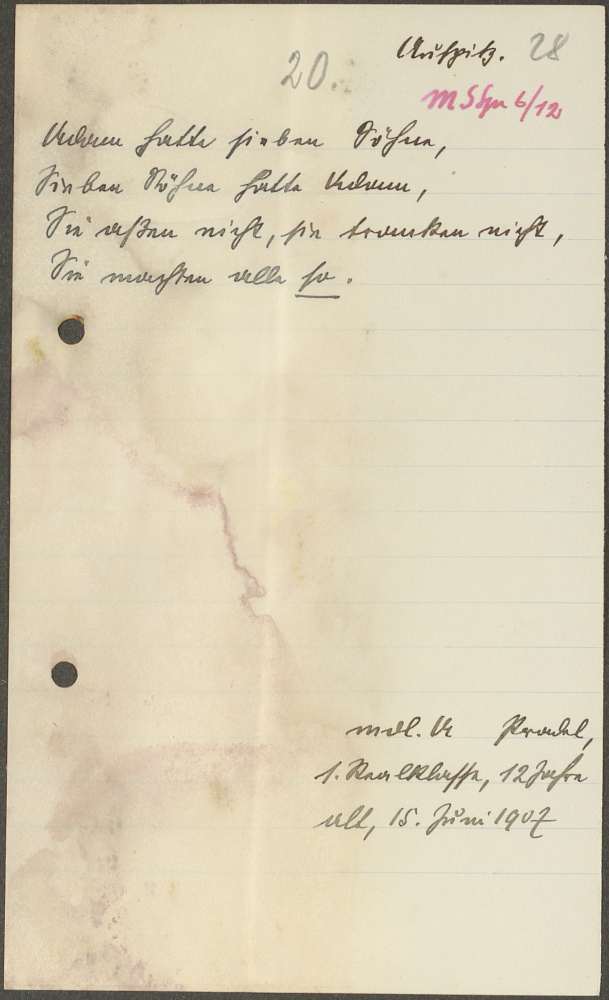 Auspitz. 28
20.
MSSpn 6/12
Adam hatte sieben Söhne,
Sieben Söhne hatte Adam,
Sie aßen nicht, sie tranken nicht,
Sie machten alle so.
mdl. A Pradel,
1. Realklasse, 12 Jahre
alt, 15. Juni 1907